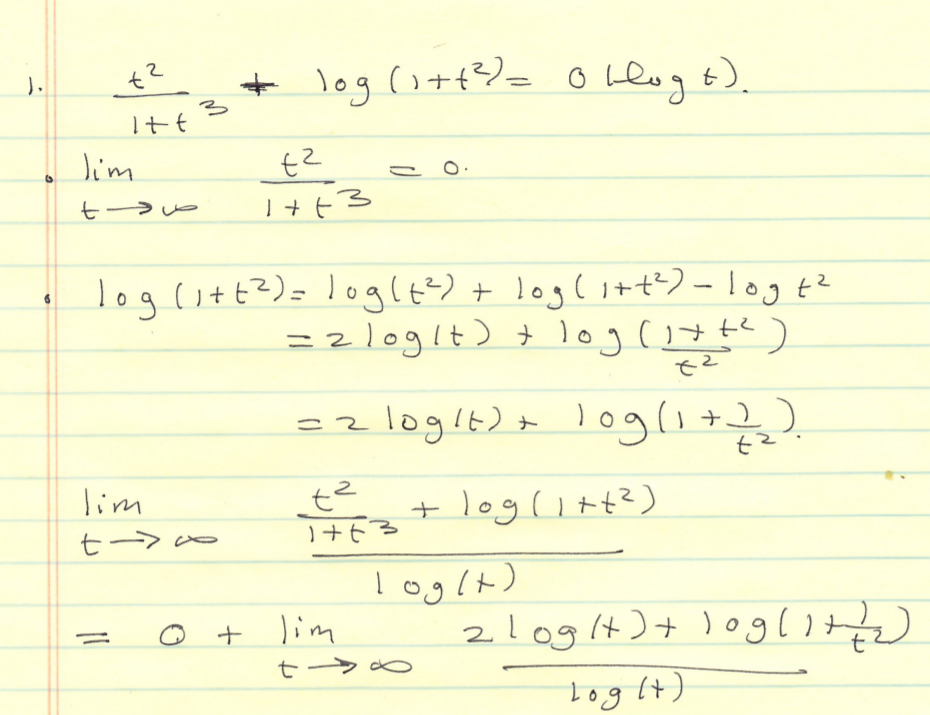 1. t²/(1+t³) + log(1+t²) = O(log t).
• lim t→∞ t²/(1+t³) = 0.
• log(1+t²) = log(t²) + log(1+t²) - log t²
= 2 log(t) + log((1+t²)/t²)
= 2 log(t) + log(1 + 1/t²).
lim t→∞ (t²/(1+t³) + log(1+t²))/log(t)
= 0 + lim t→∞ (2 log(t) + log(1 + 1/t²))/log(t)